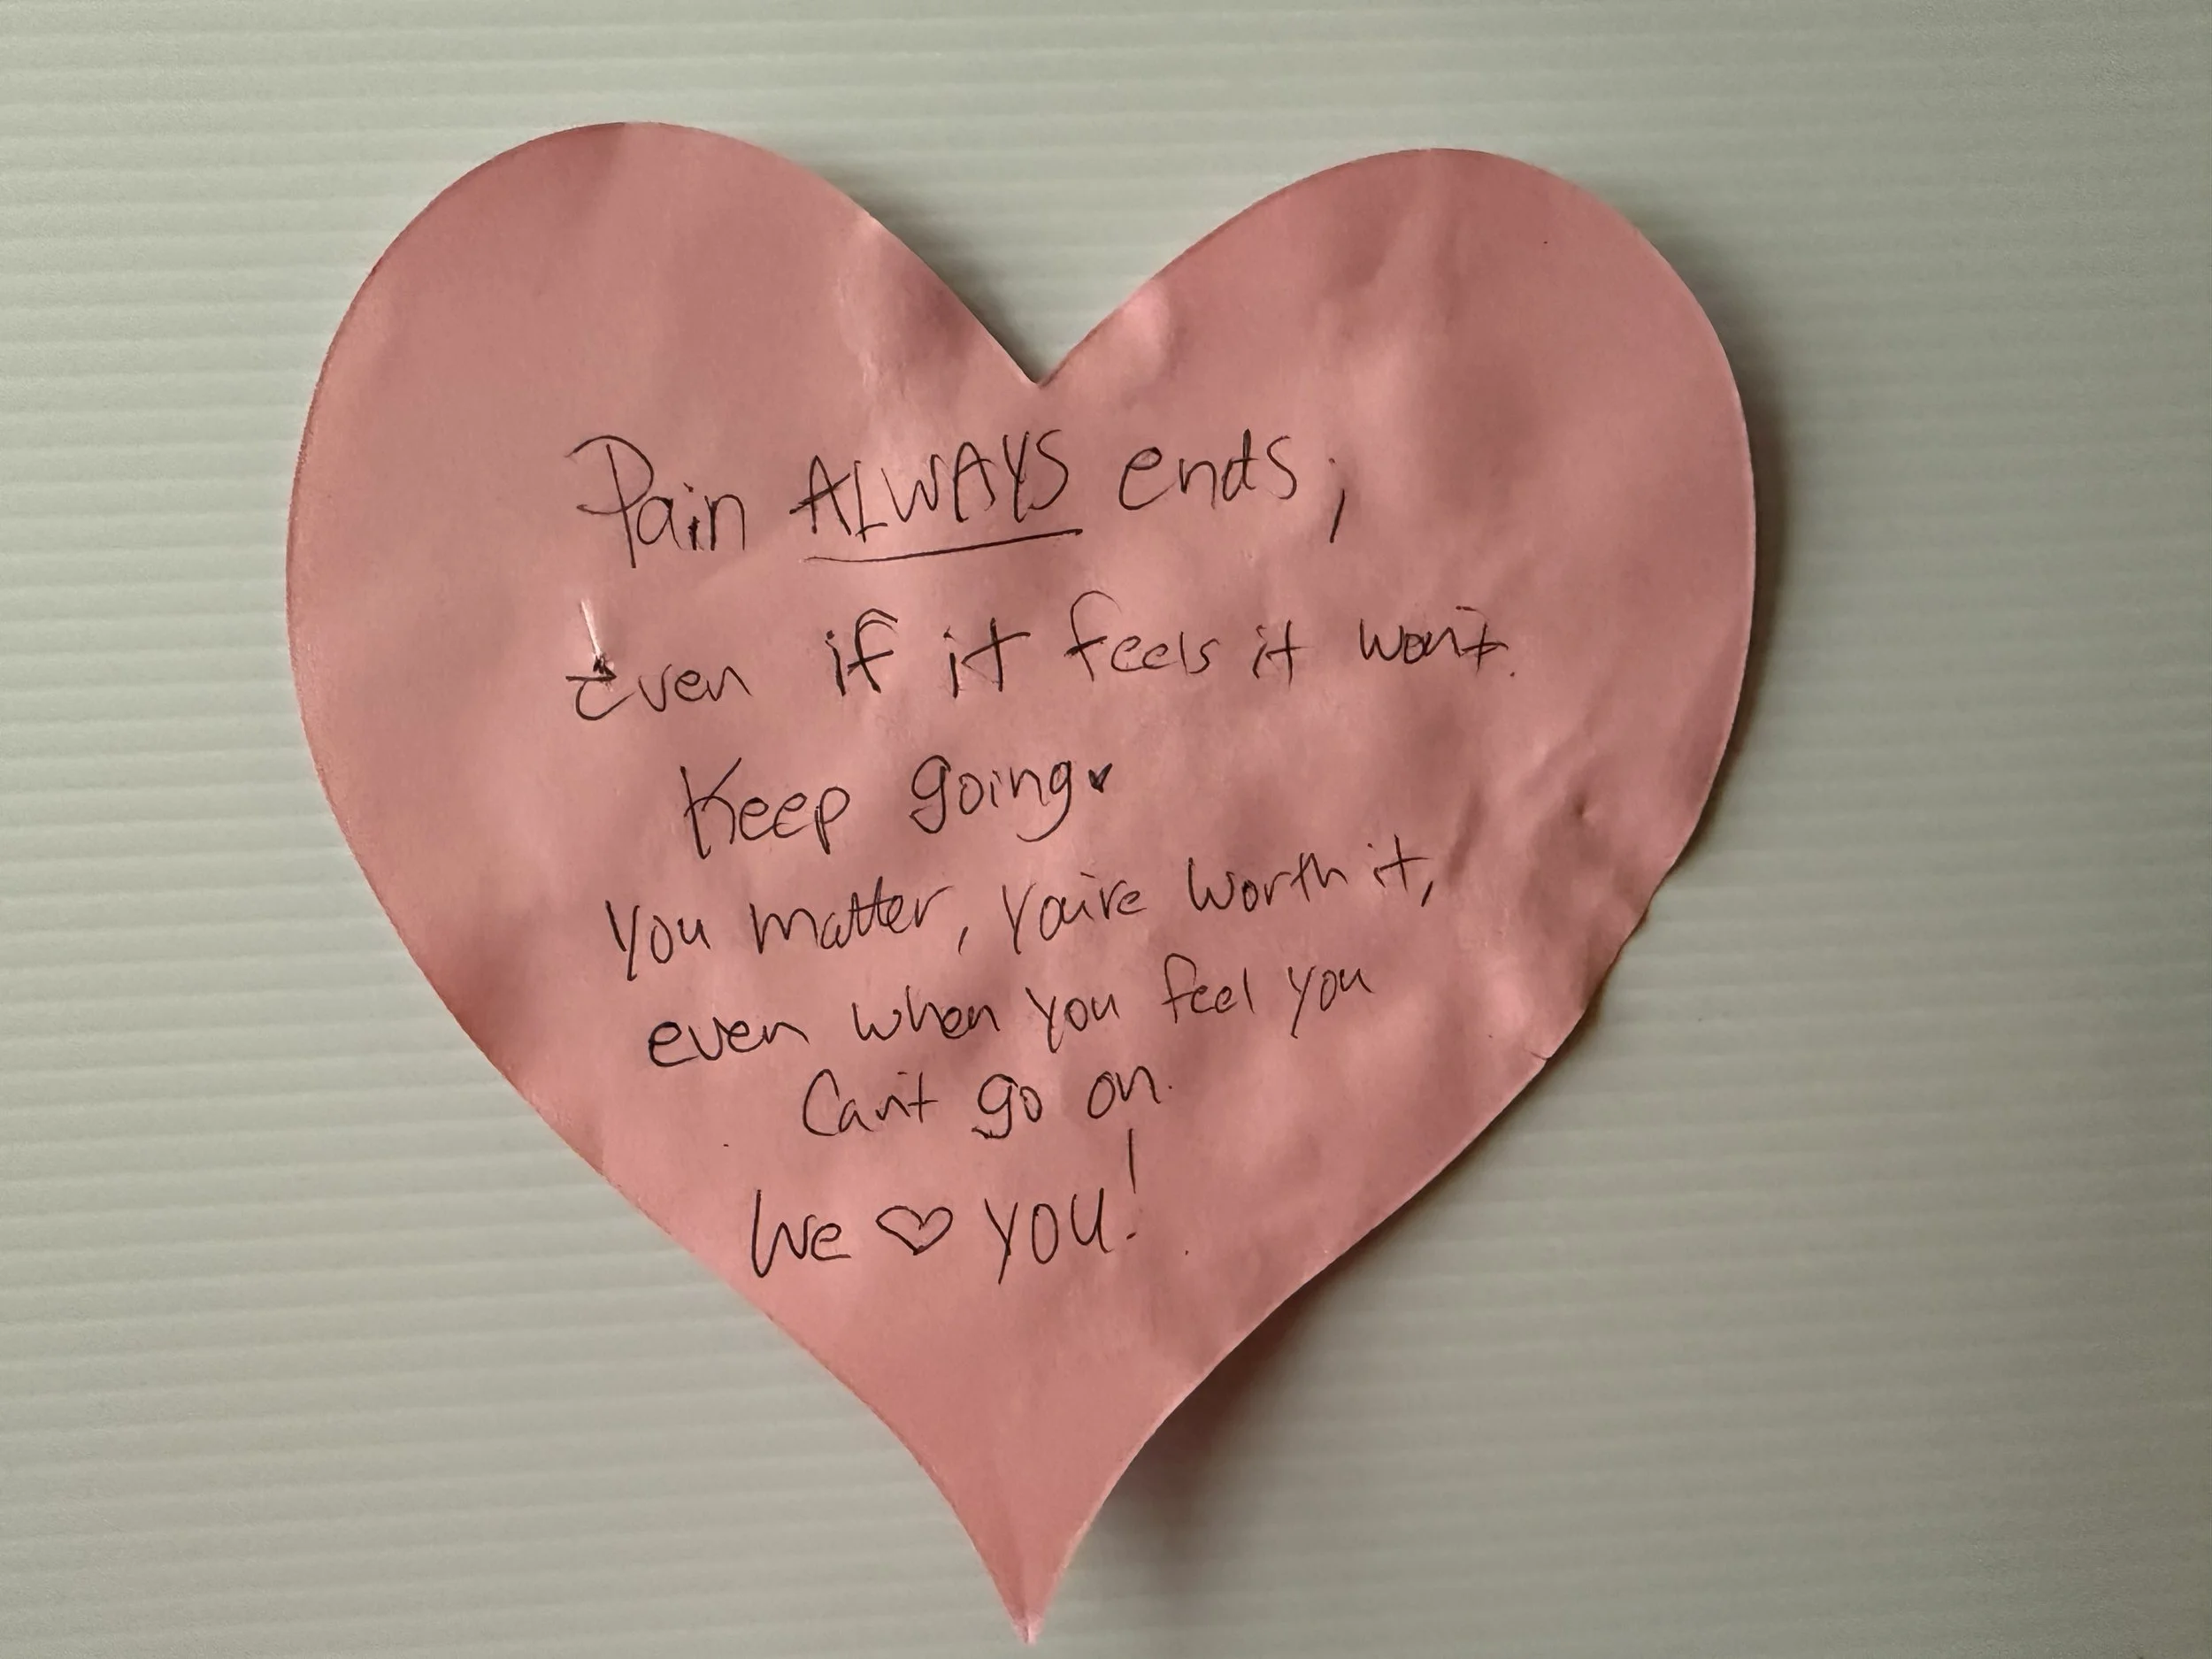 Pain ALWAYS ends;
Even if it feels it won't.
Keep going.
You matter, you're worth it,
even when you feel you
Can't go on.
We ♡ YOU!